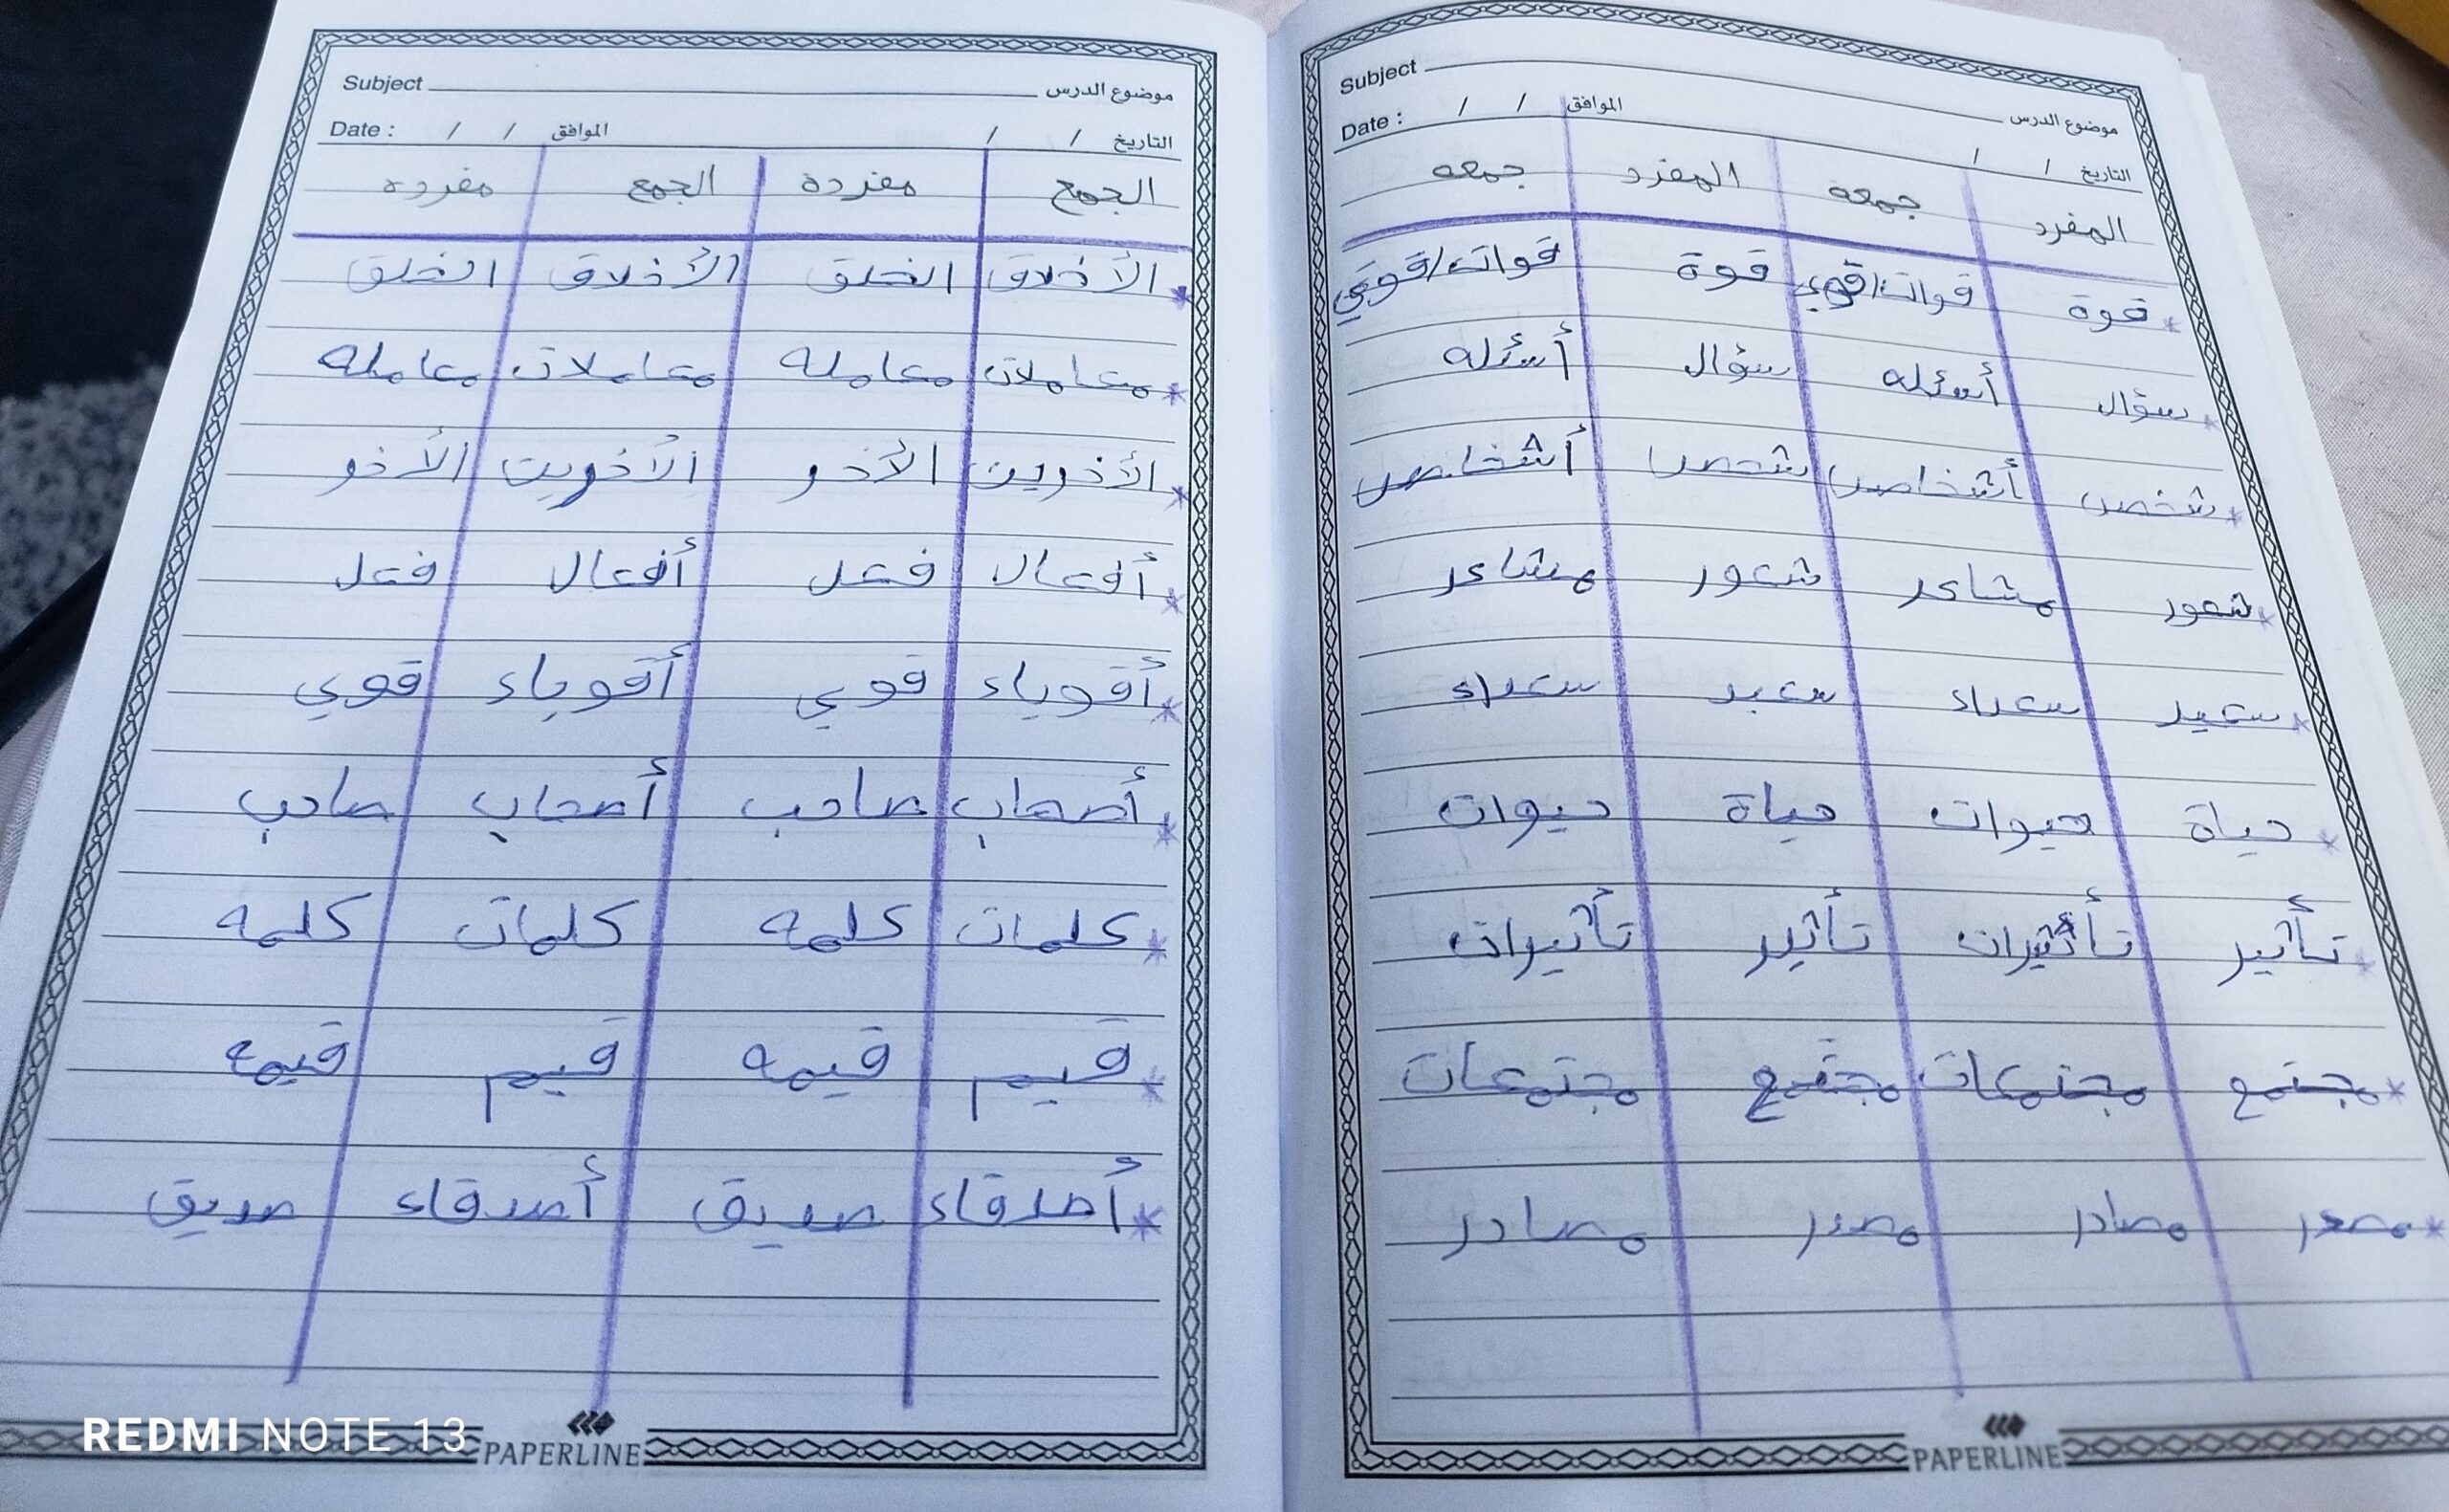 Subject موضوع الدرس
Date : / / الموافق / / التاريخ
المفرد جمعه المفرد جمعه
* قوة قوات/قوي قوة قوات/قوي
* سؤال أسئله سؤال أسئله
* شخص أشخاص شخص أشخاص
* شعور مشاعر شعور مشاعر
* سعيد سعداء سعيد سعداء
* حياة حيوات حياة حيوات
* تأثير تأثيرات تأثير تأثيرات
* مجتمع مجتمعات مجتمع مجتمعات
* مصدر مصادر مصدر مصادر
PAPERLINE
Subject موضوع الدرس
Date : / / الموافق / / التاريخ
الجمع مفرده الجمع مفرده
* الأخلاق الخلق الأخلاق الخلق
* معاملات معامله معاملات معامله
* الأخوين الأخو الأخوين الأخو
* أفعال فعل أفعال فعل
* أقوياء قوي أقوياء قوي
* أصحاب صاحب أصحاب صاحب
* كلمات كلمه كلمات كلمه
* قيم قيمه قيم قيمه
* أصدقاء صديق أصدقاء صديق
PAPERLINE
REDMI NOTE 13